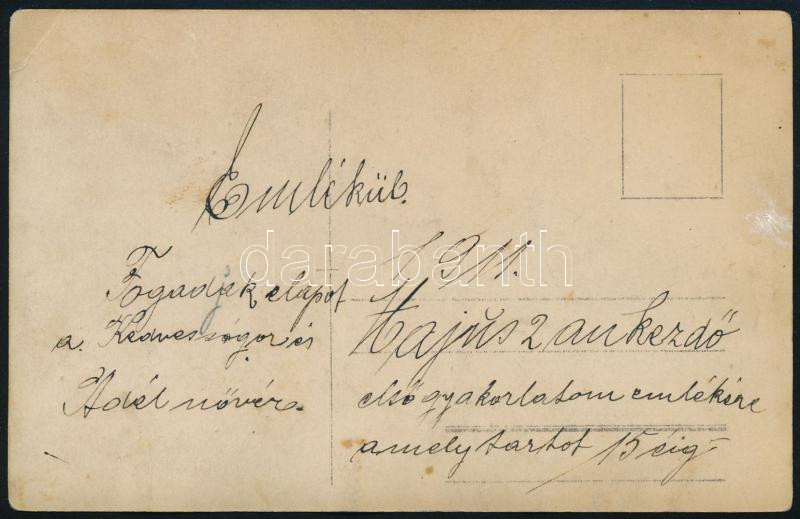 Emlékül.
1911.
Fogadják elapot
a. Kedves sógor és
Adél növér.
Majŭs 2 an kezdő
első gyakorlatom emlékére
amely tartot 15 éig
darabanth